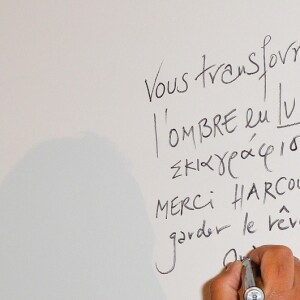 Vous transfor
l'OMBRE en lu
σκιαγράφισ
MERCI HARCOU
garder le rêv